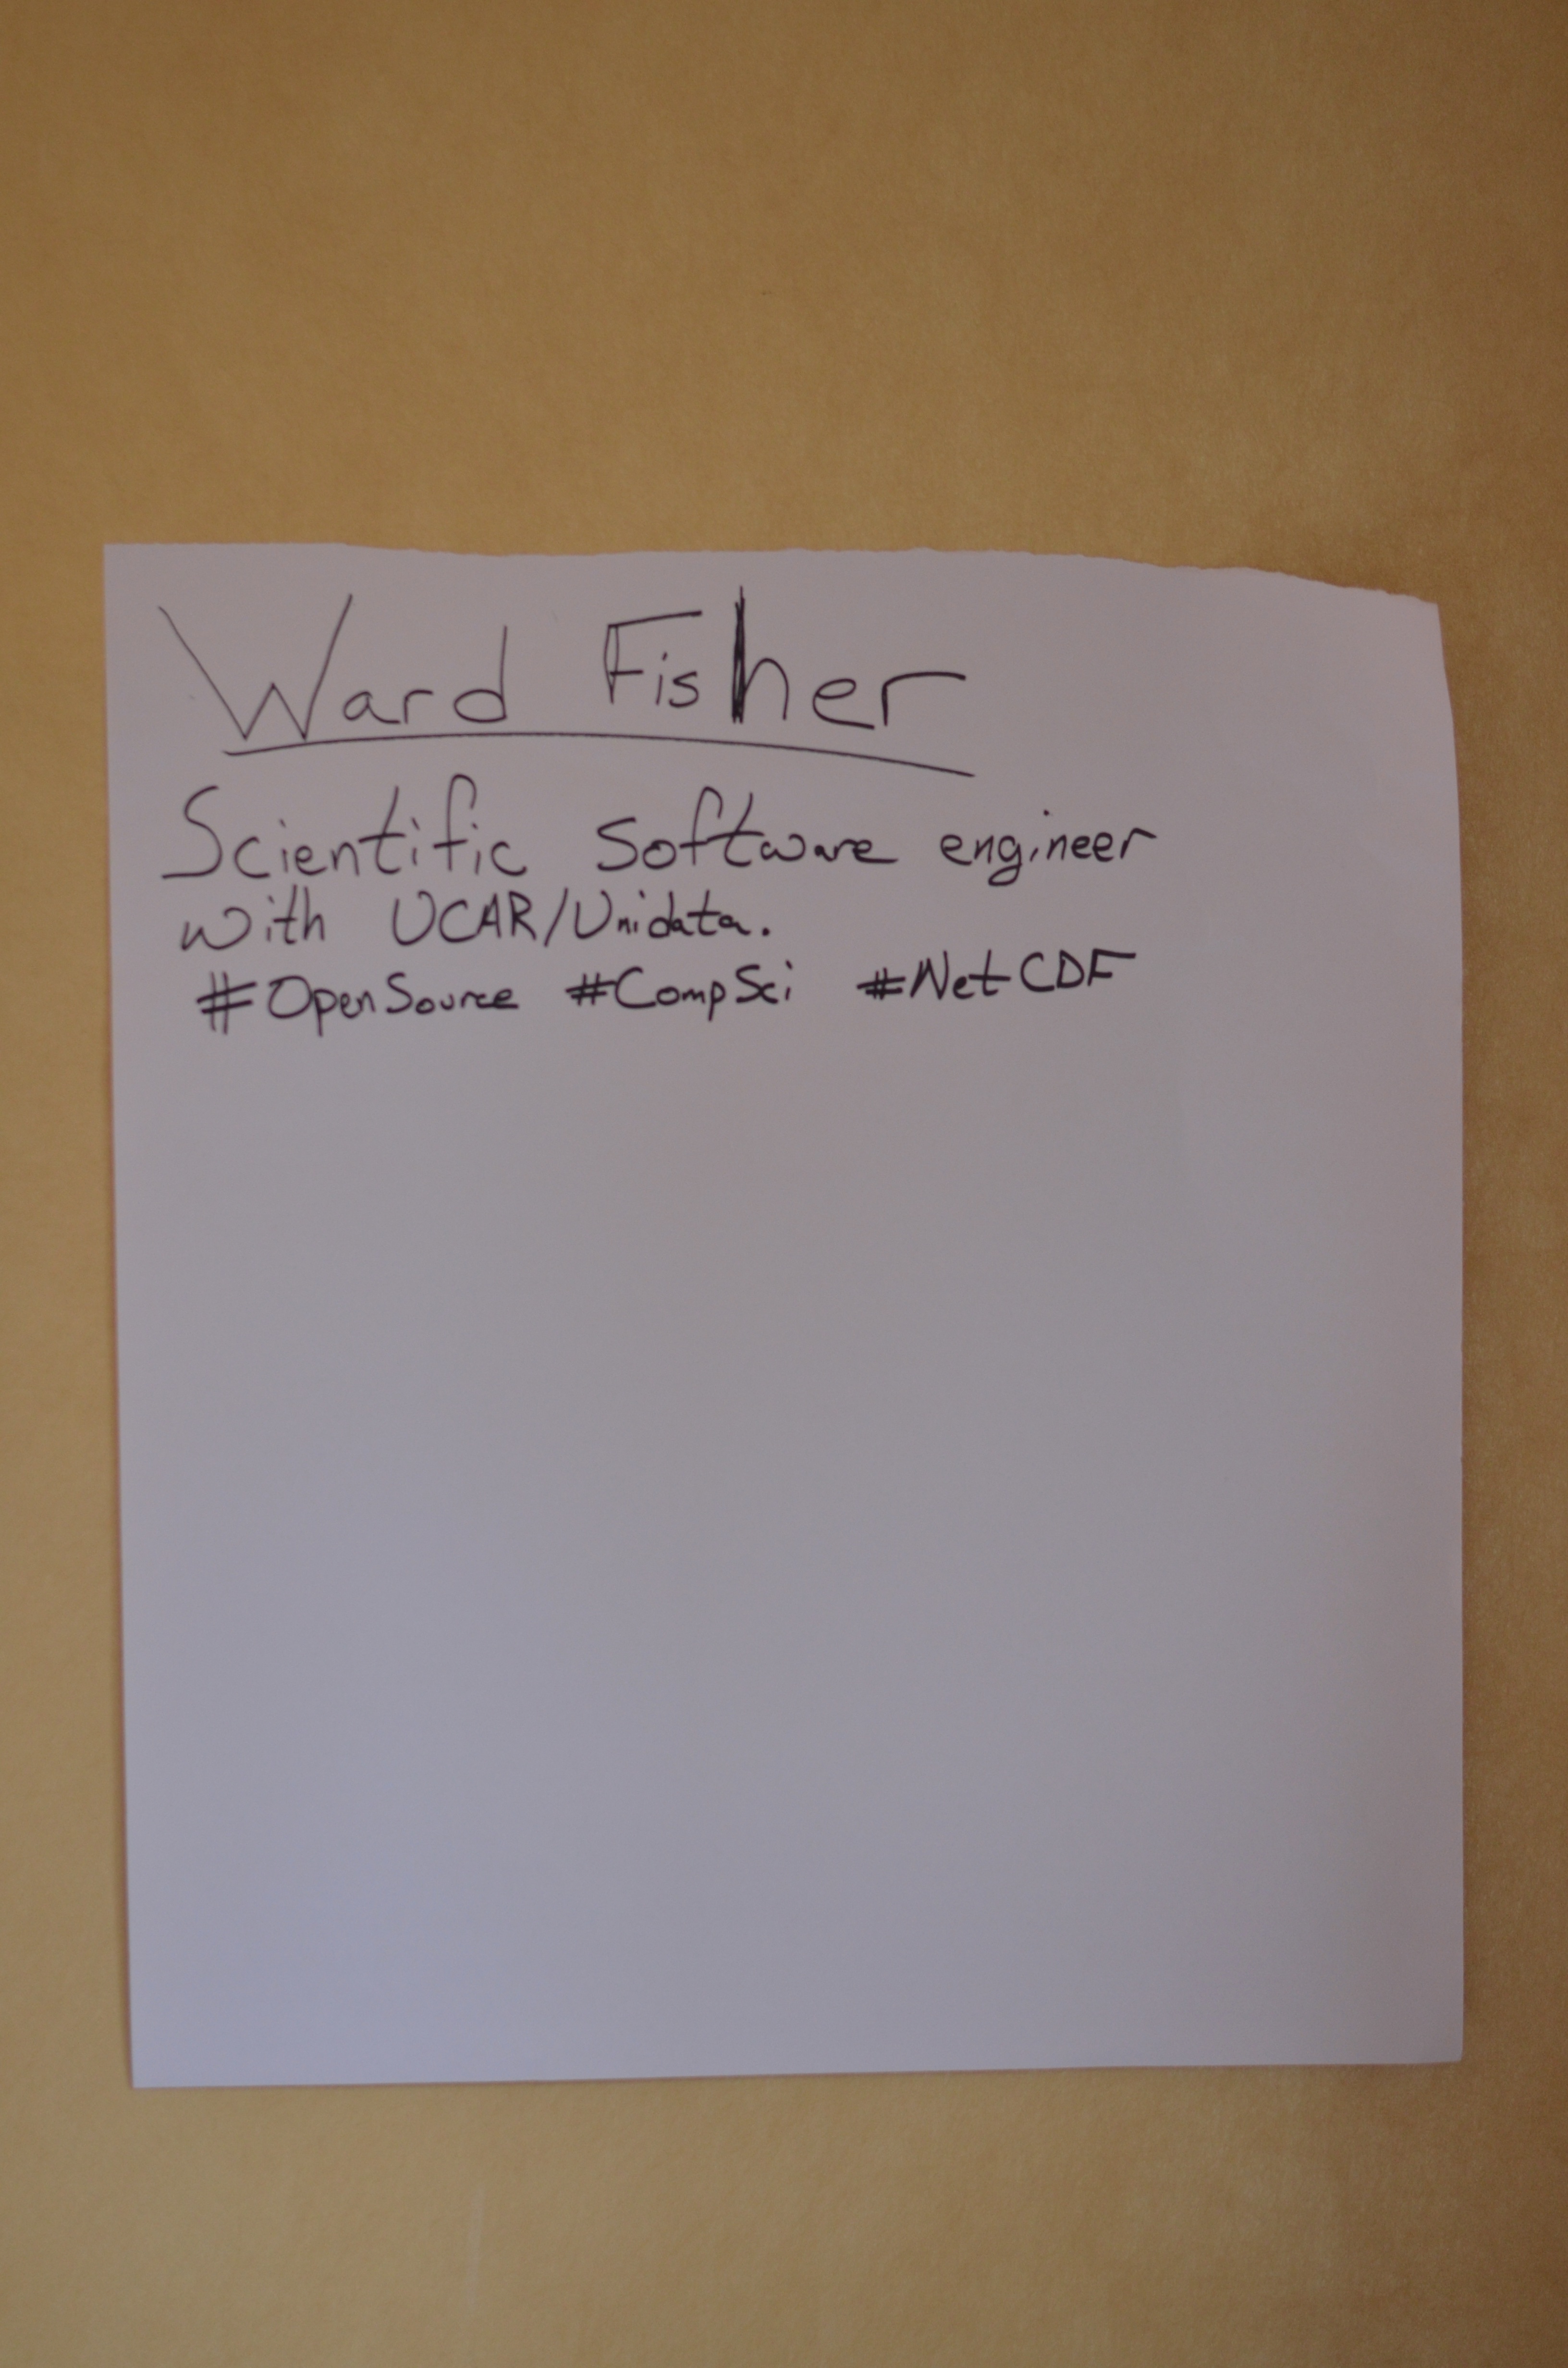 Ward Fisher
Scientific software engineer
with UCAR/Unidata.
#OpenSource #CompSci #NetCDF